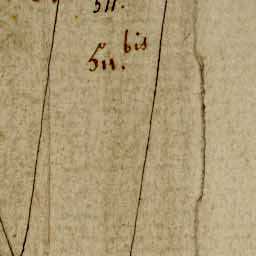 511.
511. bis